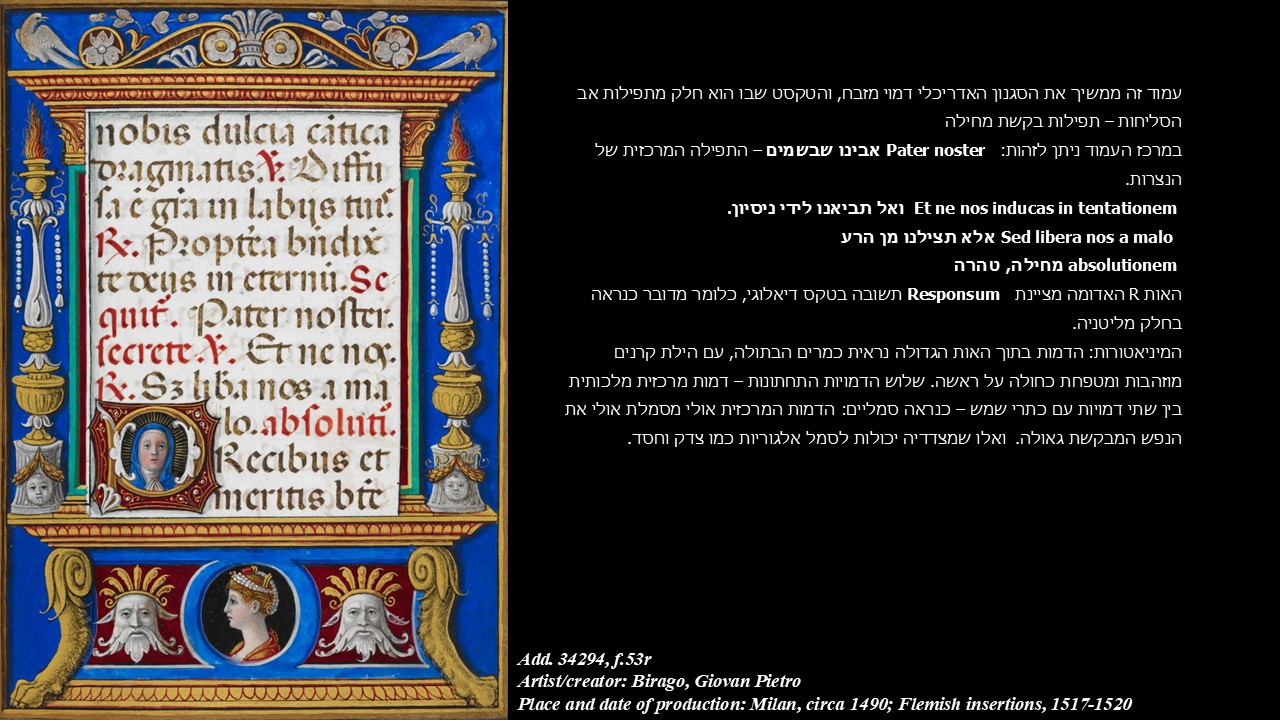 nobis dulcia cātica
dragmatis. V. Diffu
sa ē grā in labijs tuis.
R. Proptea bndix
te deus in eternū. Se
quit. Pater noster.
secrete. V. Et ne nos.
R. Sz liba nos a ma
lo. absoluti.
Recibus et
meritis bte
עמוד זה ממשיך את הסגנון האדריכלי דמוי מזבח, והטקסט שבו הוא חלק מתפילות אב
הסליחות – תפילות בקשת מחילה
במרכז העמוד ניתן לזהות: Pater noster אבינו שבשמים – התפילה המרכזית של
הנצרות.
Et ne nos inducas in tentationem ואל תביאנו לידי ניסיון.
Sed libera nos a malo אלא תצילנו מן הרע
absolutionem מחילה, טהרה
האות R האדומה מציינת Responsum תשובה בטקס דיאלוגי, כלומר מדובר כנראה
בחלק מליטניה.
המיניאטורות: הדמות בתוך האות הגדולה נראית כמרים הבתולה, עם הילת קרנים
מוזהבות ומטפחת כחולה על ראשה. שלוש הדמויות התחתונות – דמות מרכזית מלכותית
בין שתי דמויות עם כתרי שמש – כנראה סמליים: הדמות המרכזית אולי מסמלת אולי את
הנפש המבקשת גאולה. ואלו שמצדדיה יכולות לסמל אלגוריות כמו צדק וחסד.
Add. 34294, f.53r
Artist/creator: Birago, Giovan Pietro
Place and date of production: Milan, circa 1490; Flemish insertions, 1517-1520